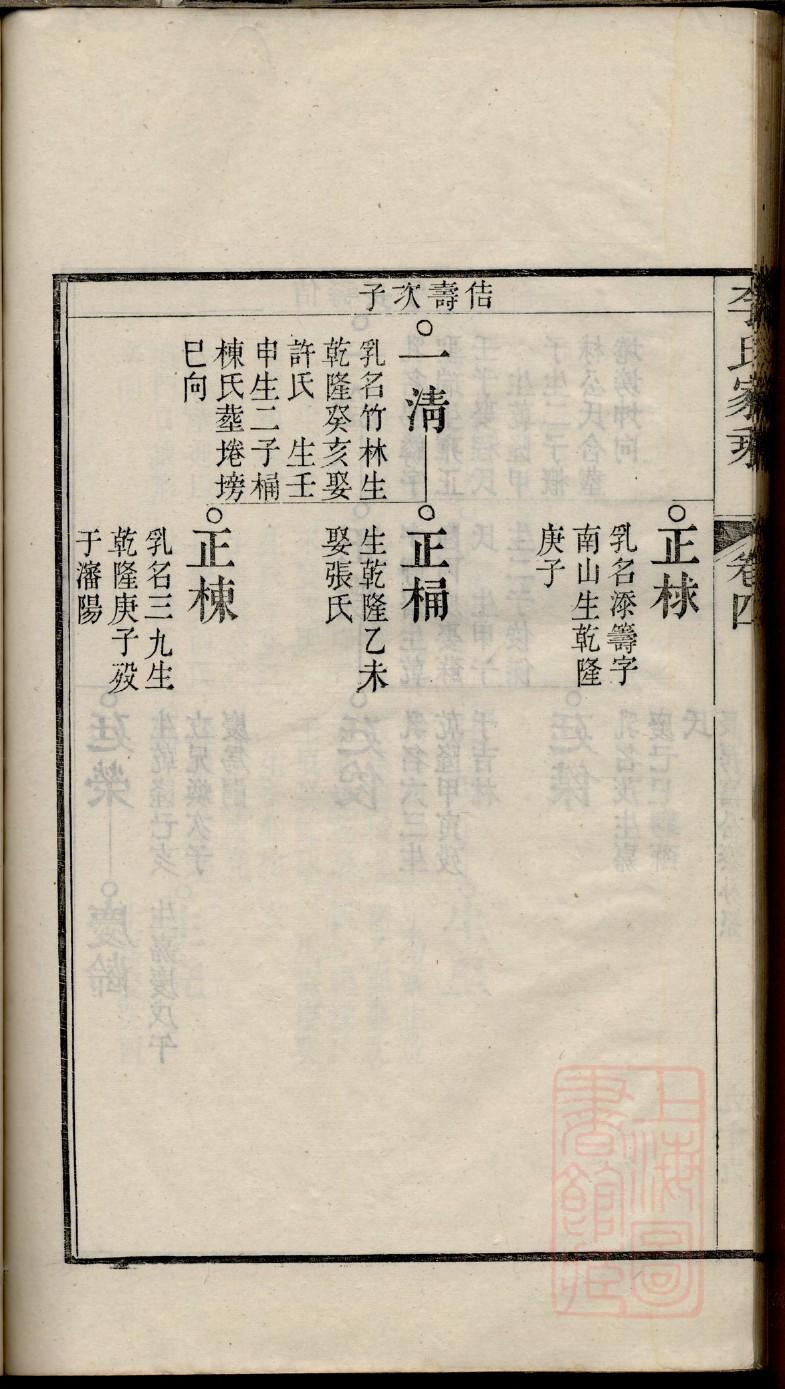 李氏家乘
卷四
正棣
乳名添籌字
南山生乾隆
庚子
佶壽次子
一清
乳名竹林生
乾隆癸亥娶
許氏 生壬
申生二子桶
棟氏塟埢塝
巳向
正桶
生乾隆乙未
娶張氏
正棟
乳名三九生
乾隆庚子殁
于瀋陽
上海圖書館藏